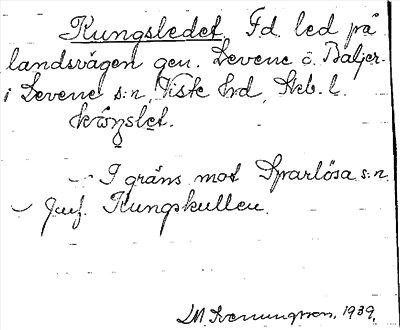 Kungsledet. Fd. led på
landsvägen gen. Levene o. Baljer.
i Levene s:n, Viste hrd, Skb. l.
I gräns mot Sparlösa s:n.
Jmf. Kungskullen.
1939.